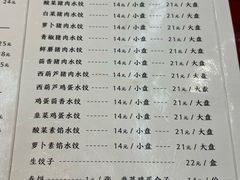 酸菜猪肉水饺 14元/小盘 21元/大盘
白菜猪肉水饺 14元/小盘 21元/大盘
萝卜猪肉水饺 14元/小盘 21元/大盘
青椒猪肉水饺 14元/小盘 21元/大盘
鲜蘑猪肉水饺 14元/小盘 21元/大盘
茴香猪肉水饺 14元/小盘 21元/大盘
西葫芦猪肉水饺 14元/小盘 21元/大盘
西葫芦鸡蛋水饺 14元/小盘 21元/大盘
鸡蛋茴香水饺 14元/小盘 21元/大盘
韭菜鸡蛋水饺 14元/小盘 21元/大盘
酸菜素馅水饺 14元/小盘 21元/大盘
萝卜素馅水饺 14元/小盘 21元/大盘
生饺子 22元/盒